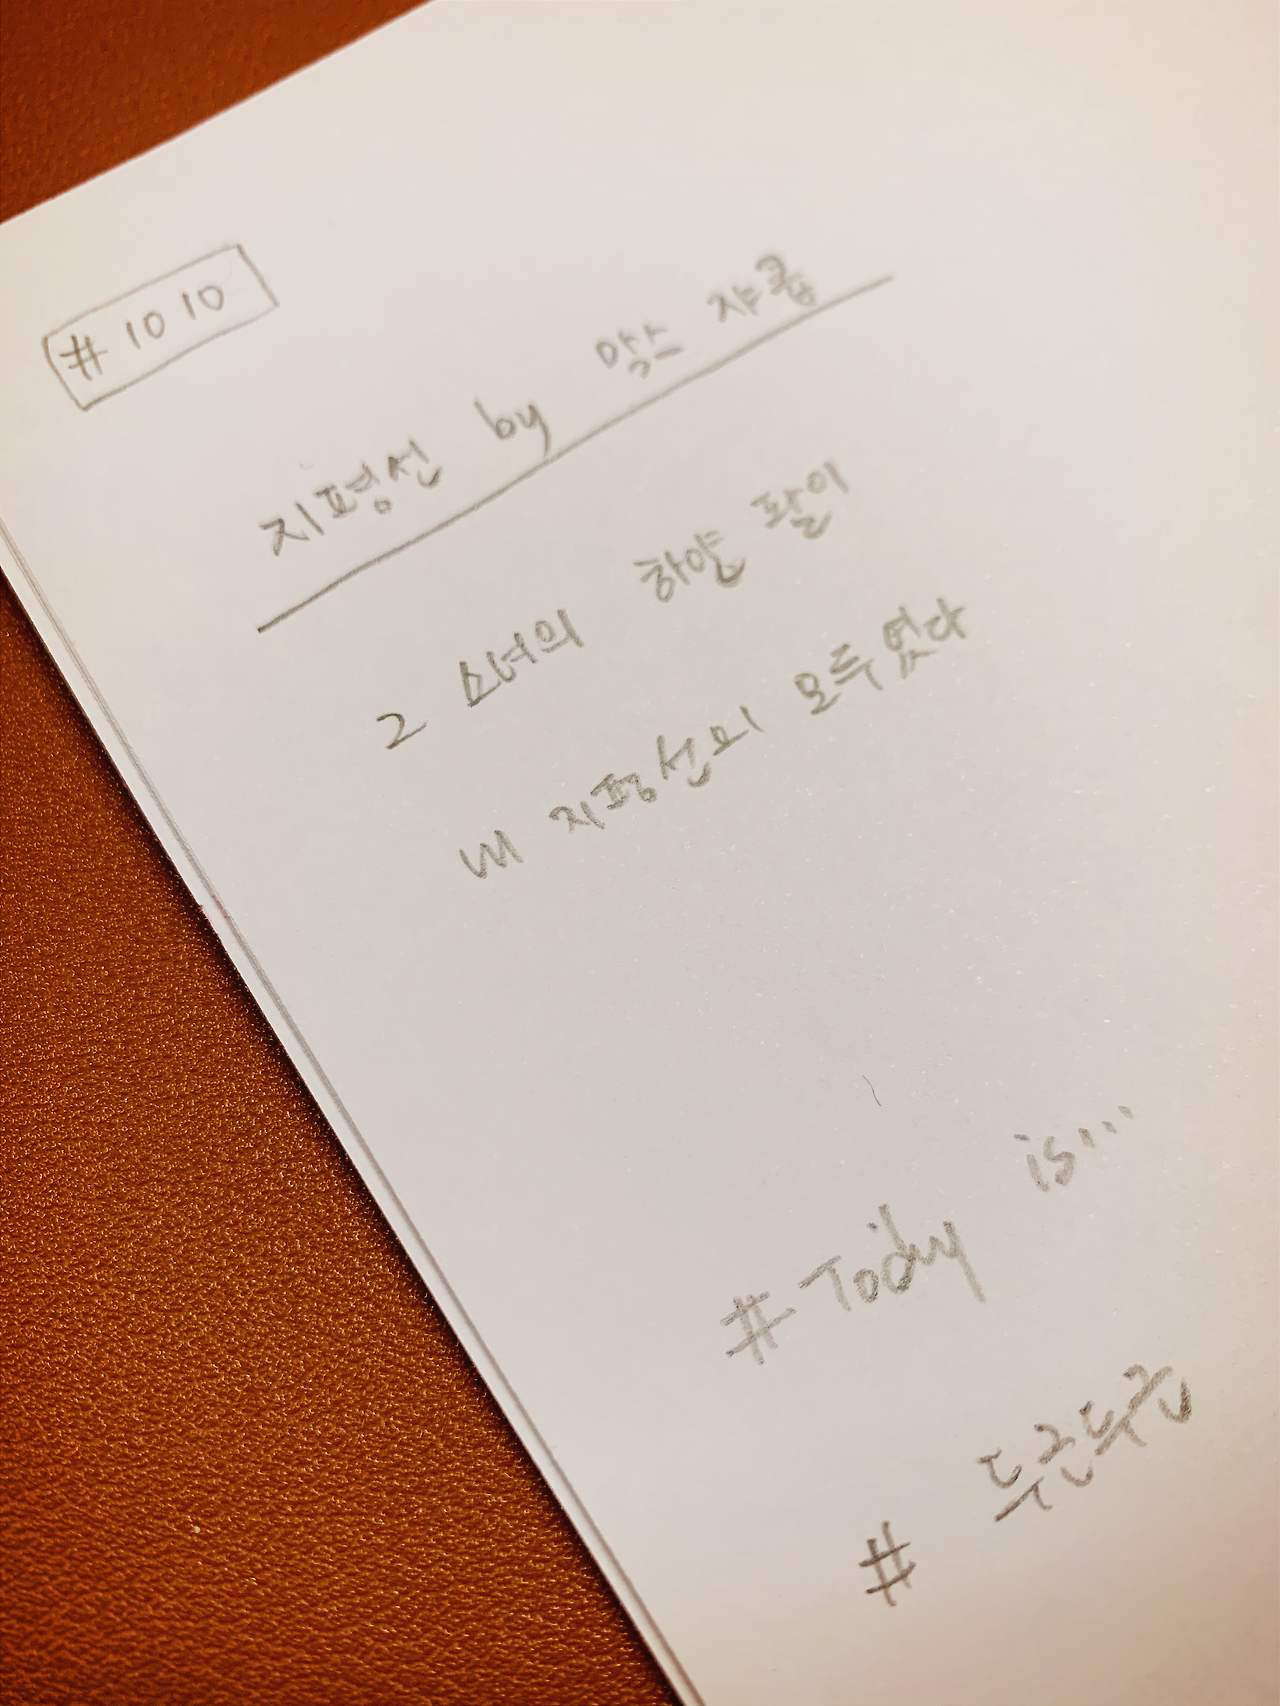 #1010
지평선 by 막스 쟈콥
그 소녀의 하얀 팔이
내 지평선의 모두였다
#Today is...
# 두근두근